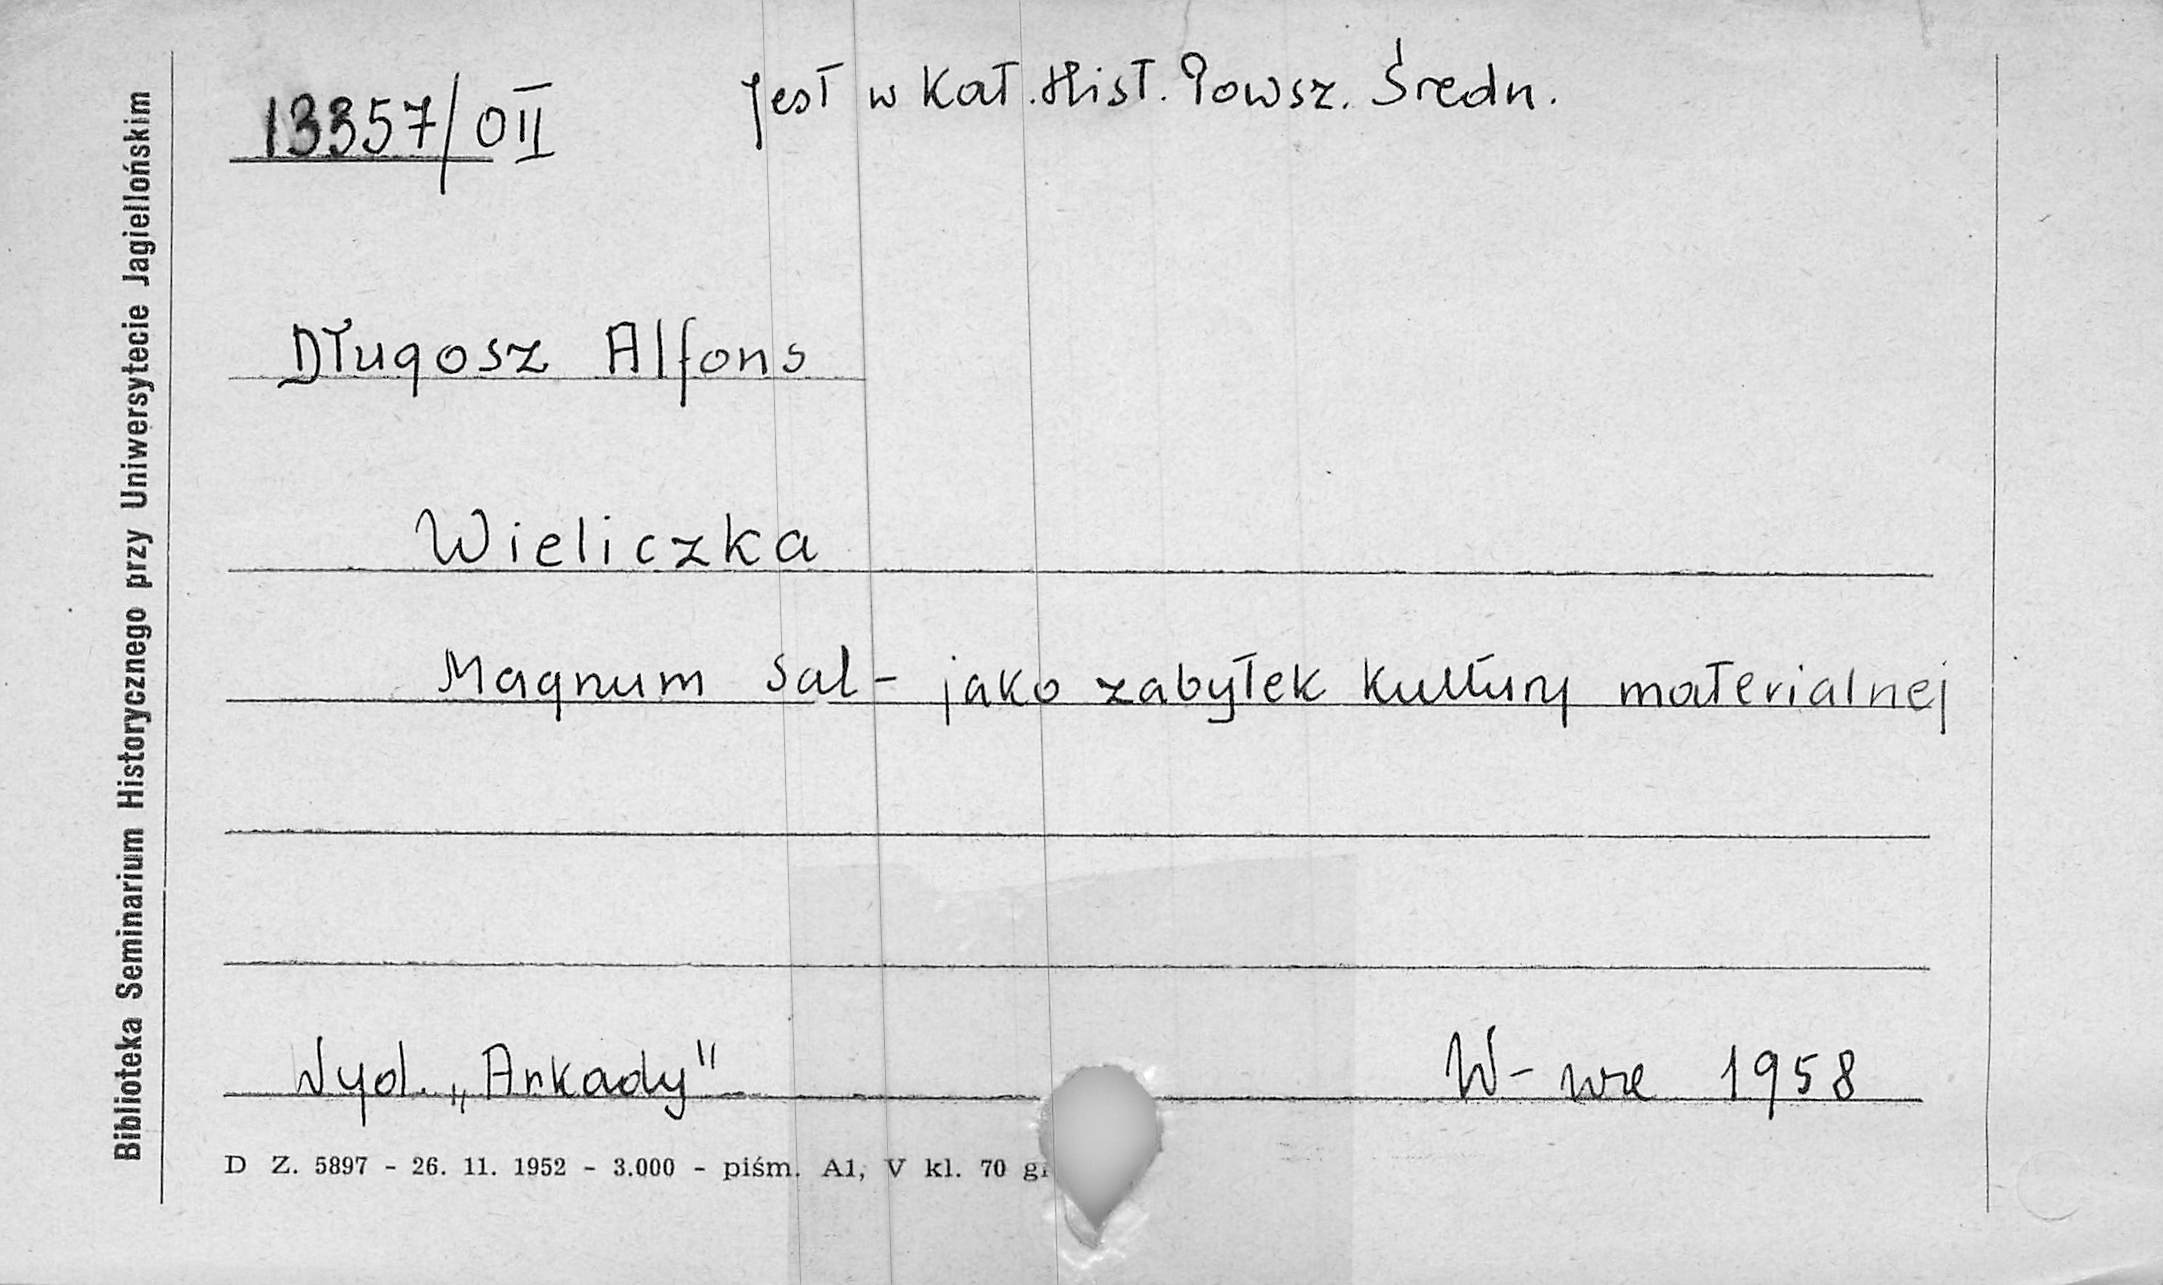 Biblioteka Seminarium Historycznego przy Uniwersytecie Jagiellońskim
13357/OII
Jest w Kat. Hist. Powsz. Średn.
Długosz Alfons
Wieliczka
Magnum Sal - jako zabytek kultury materialnej
Wyd. „Arkady"
W-wa 1958
D Z. 5897 - 26. 11. 1952 - 3.000 - piśm. A1, V kl. 70